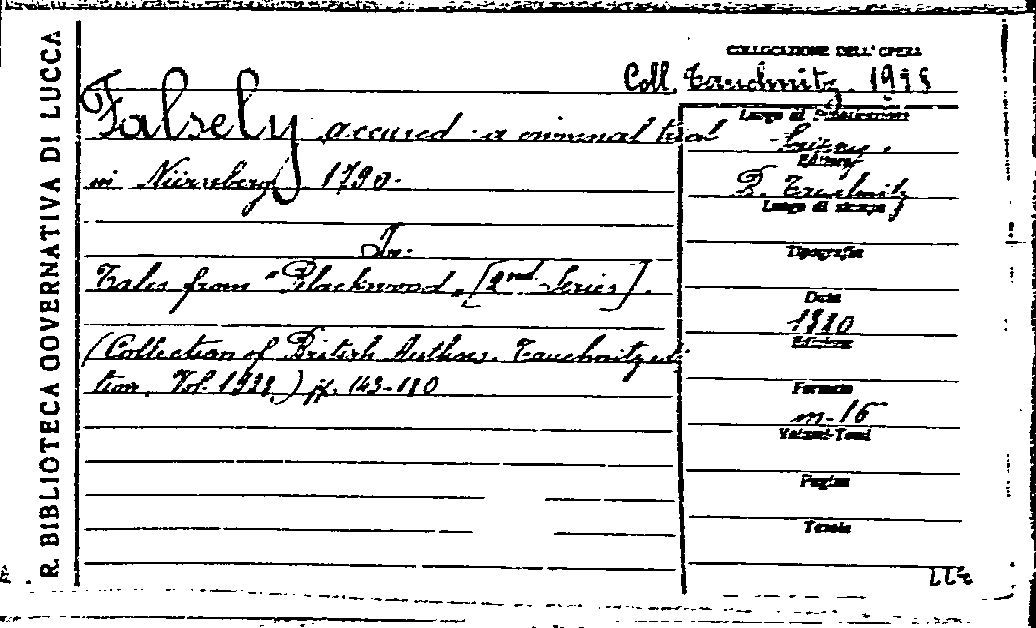 R. BIBLIOTECA GOVERNATIVA DI LUCCA
COLLOCAZIONE DELL'OPERA
Coll. Tauchnitz. 1928
Falsely accused - a criminal trial
in Nürnberg 1790.
In:
Tales from "Blackwood". [2nd Series].
(Collection of British Authors. Tauchnitz edi
tion. Vol. 1928.) pp. 143-180
Luogo di Pubblicazione
Leipzig.
Editore
B. Tauchnitz
Luogo di stampa
Tipografia
Data
1880
Edizione
Formato
in-16
Volumi-Tomi
Pagine
Tavole